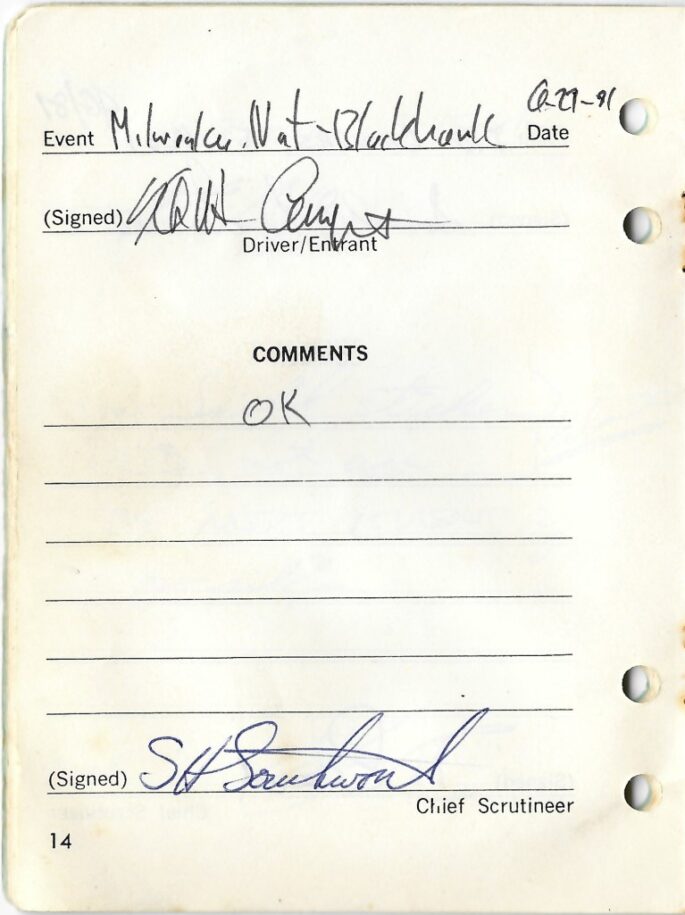 Event Milwaukee Nat-Blackhawk Date 6-29-91
(Signed)
Driver/Entrant
COMMENTS
OK
(Signed) SH
Chief Scrutineer
14